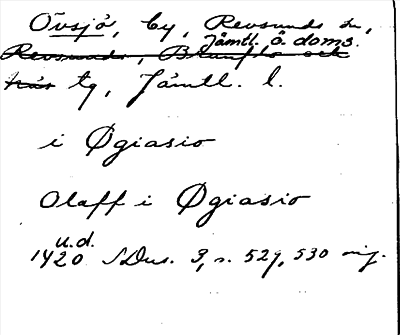 Övsjö, by, Revsunds sn,
Jämtl. ö. doms.
Revsunds, Brunflo och
Näs tg, Jämtl. l.
i Øgiasio
Olaff i Øgiasio
u.d.
1420 SDns. 3, s. 529, 530 nig.